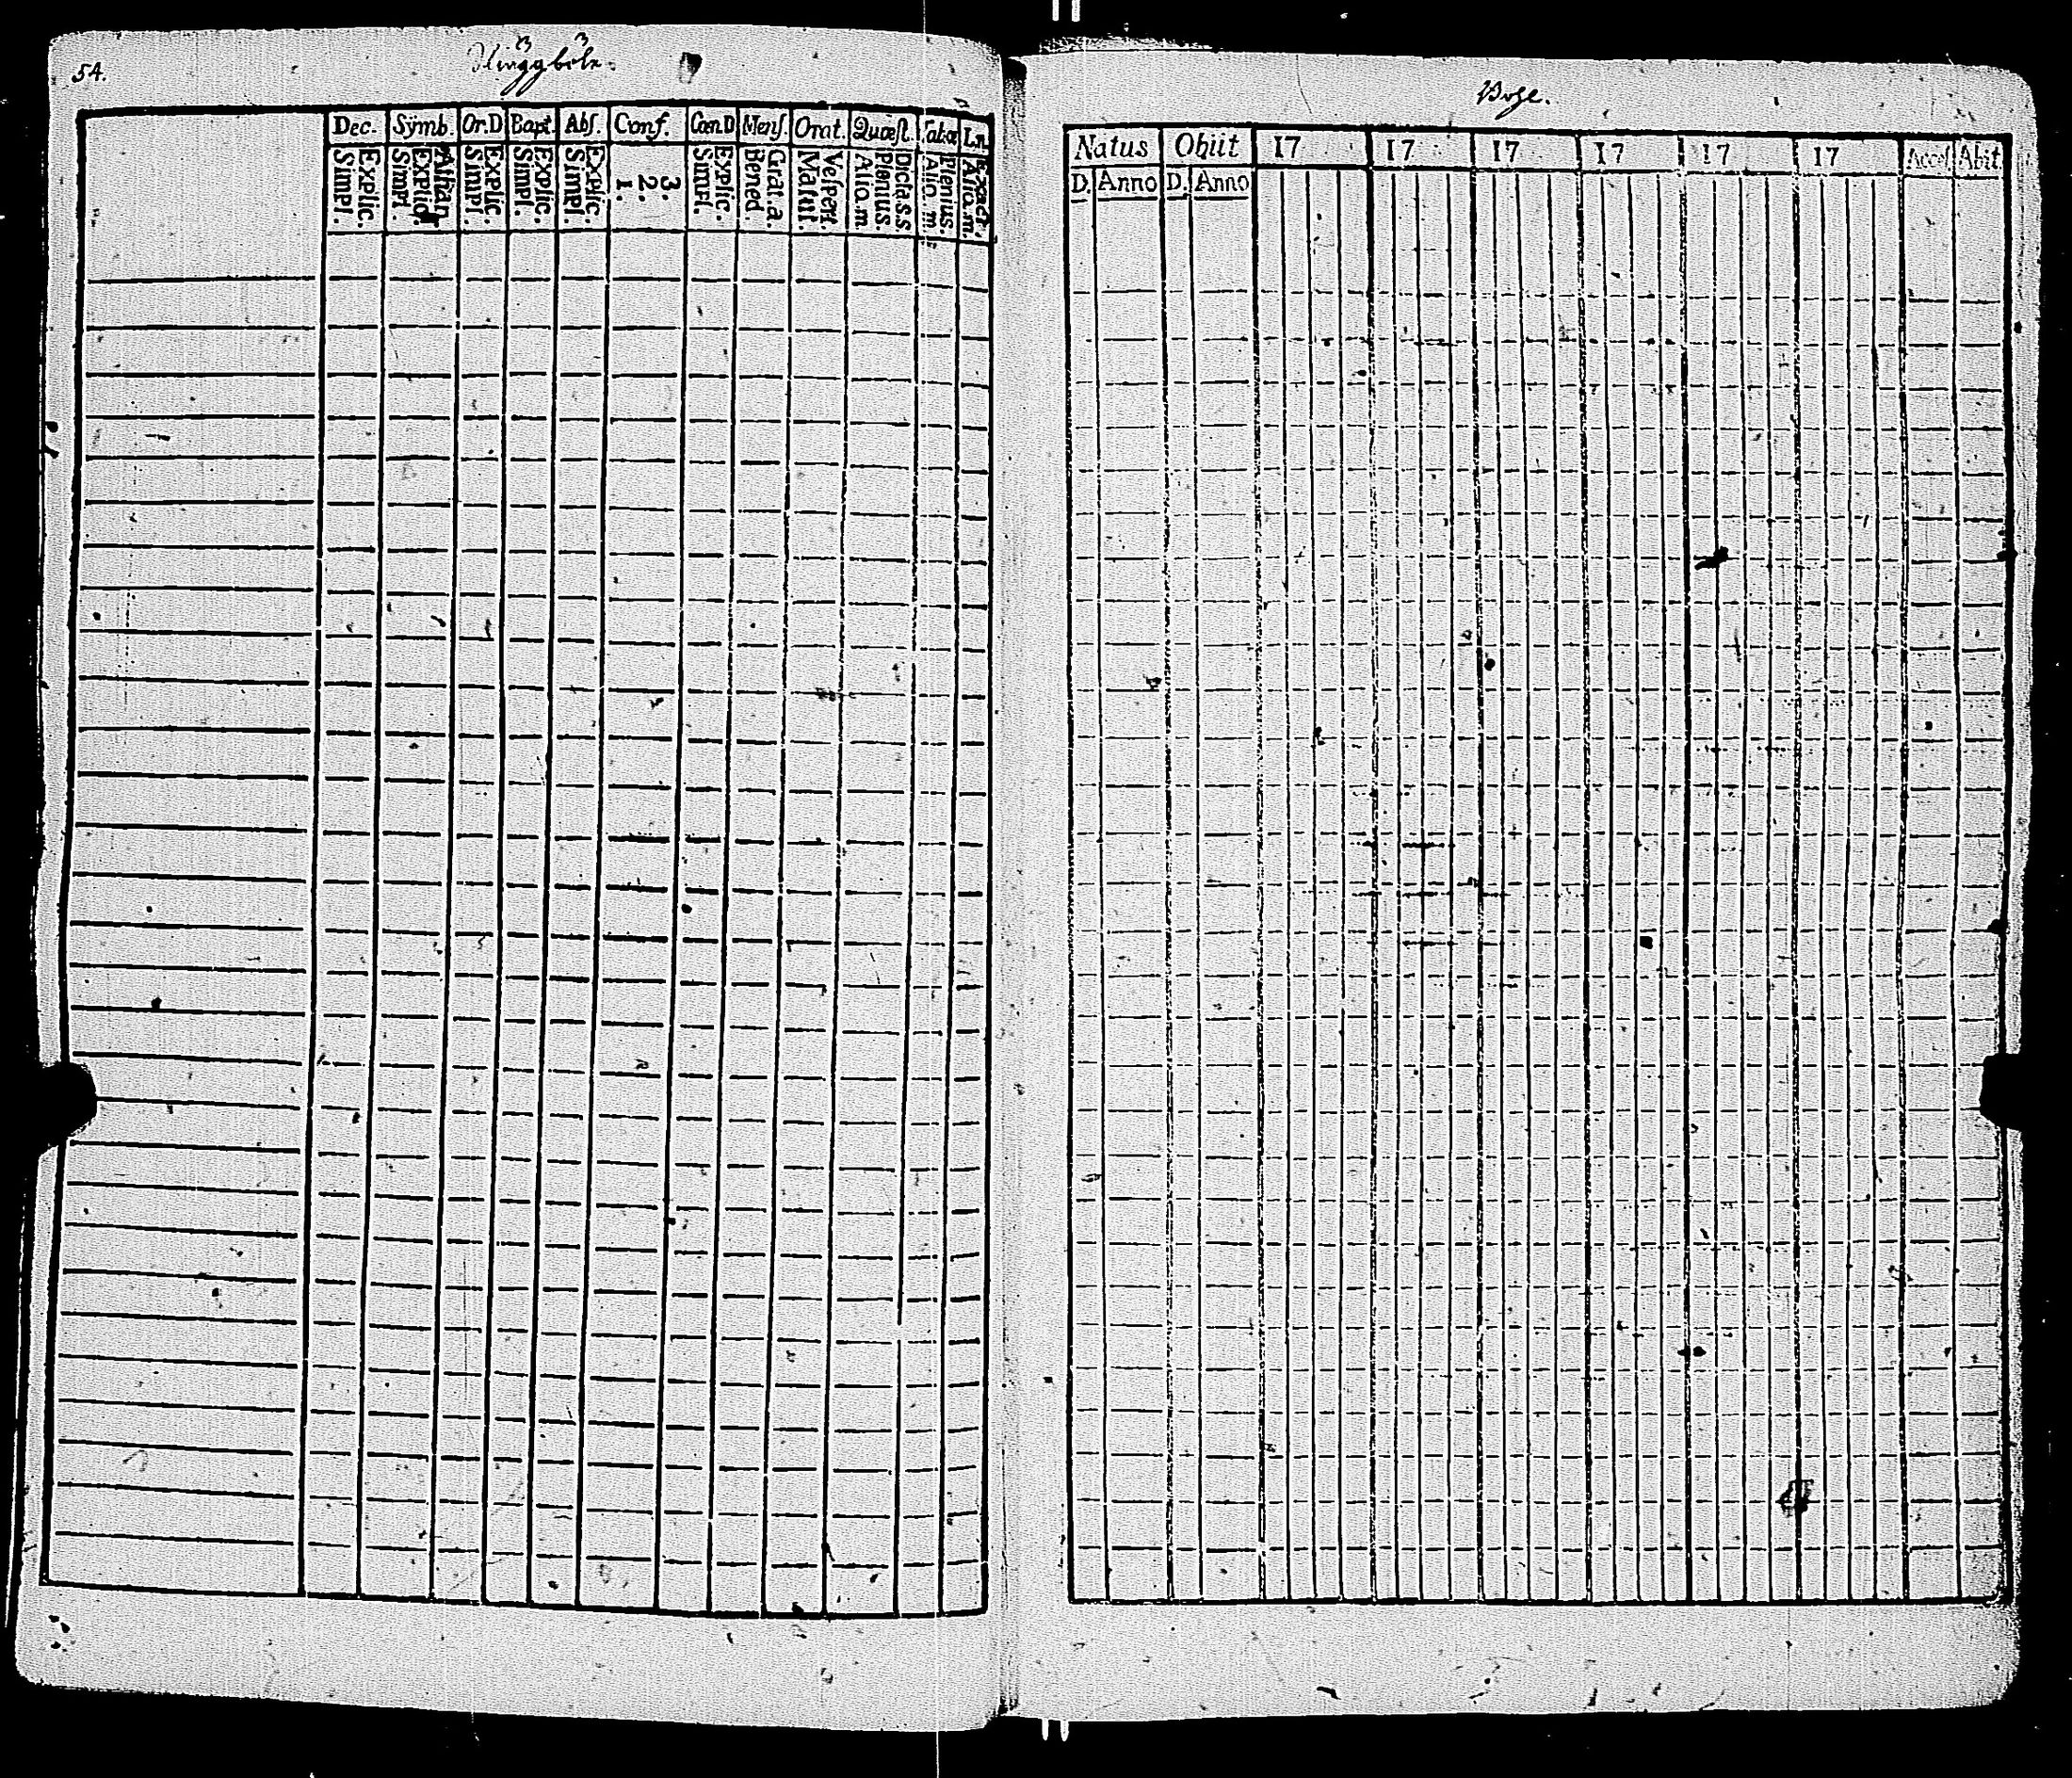 54.
Klinggböle.
Dec. Sÿmb. Or.D Bapt. Abſ. Conf. Cœn.D Menſ. Orat. Quæſt. Tabœ
Simpl. Explic. Simpl. Explic. Athan. Simpl. Explic. Simpl. Explic. Simpl. Explic. 1. 2. 3. Simpl. Explic. Bened. Grat.a. Matut. Veſpert. Alio.m. Plenius. Dicta.s.s. Alio.m. Plenius. Alio.m. Exact.
Natus Obiit 17 17 17 17 17 17 Acceſ. Abit
D. Anno D. Anno